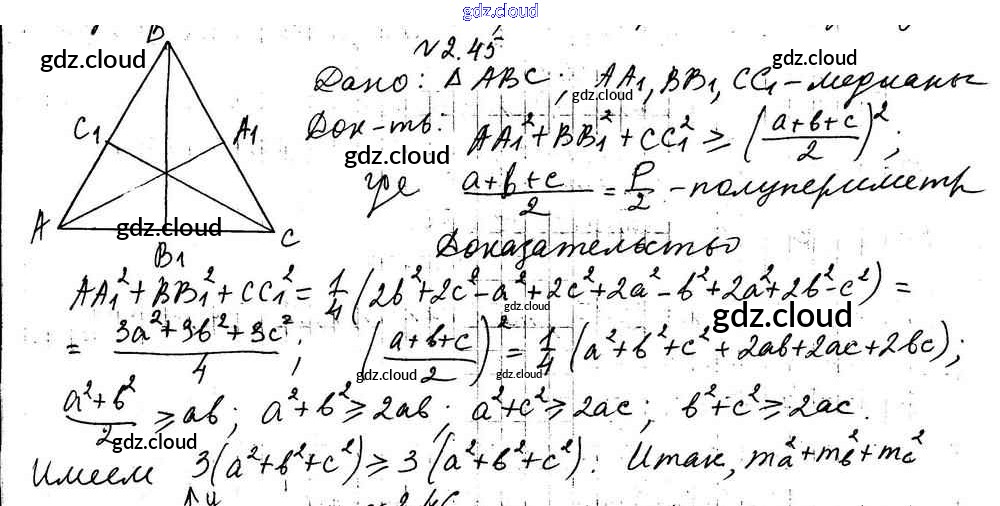 gdz.cloud
B
C₁
A₁
A
B₁
C
№ 2.45
Дано: △ABC; AA₁, BB₁, CC₁ - медианы
Док-ть: AA₁² + BB₁² + CC₁² ≥ ((a+b+c)/2)²;
где (a+b+c)/2 = P/2 - полупериметр
Доказательство
AA₁² + BB₁² + CC₁² = 1/4 (2b² + 2c² - a² + 2c² + 2a² - b² + 2a² + 2b² - c²) =
= (3a² + 3b² + 3c²)/4; ((a+b+c)/2)² = 1/4 (a² + b² + c² + 2ab + 2ac + 2bc);
(a² + b²)/2 ≥ ab; a² + b² ≥ 2ab; a² + c² ≥ 2ac; b² + c² ≥ 2ac.
Имеем 3(a² + b² + c²) ≥ 3(a² + b² + c²). Итак, mₐ² + m_b² + m_c²
gdz.cloud
gdz.cloud
gdz.cloud
gdz.cloud
gdz.cloud
gdz.cloud
gdz.cloud
gdz.cloud
gdz.cloud
gdz.cloud
gdz.cloud